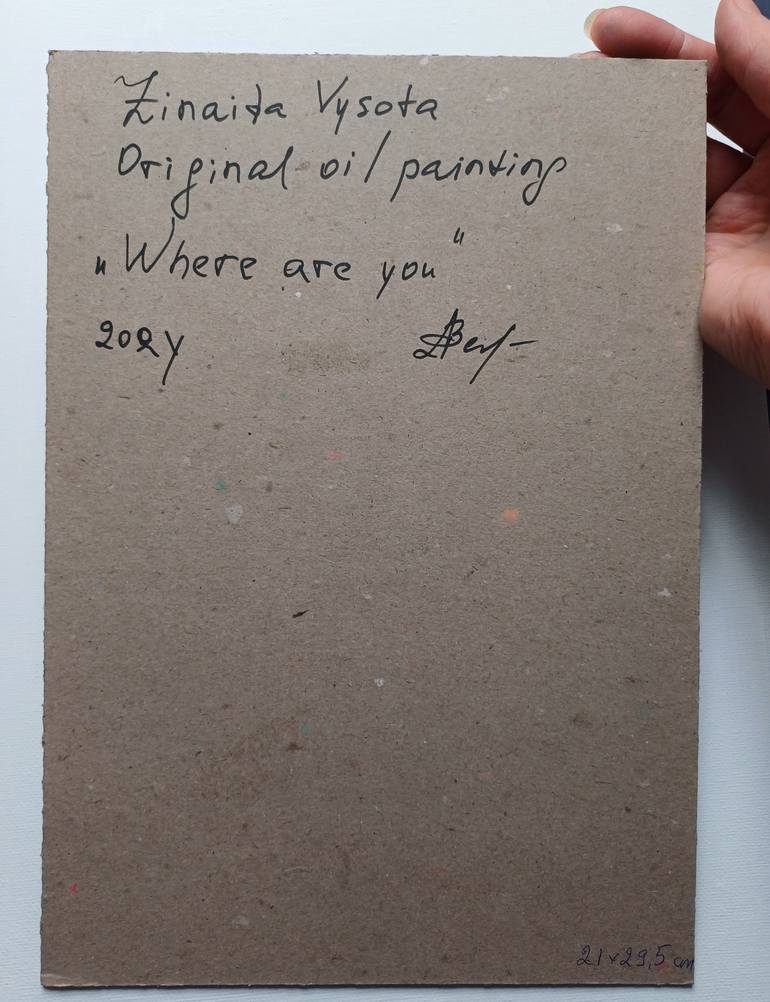 Zinaida Vysota
Original oil painting
„Where are you"
21×29,5 cm